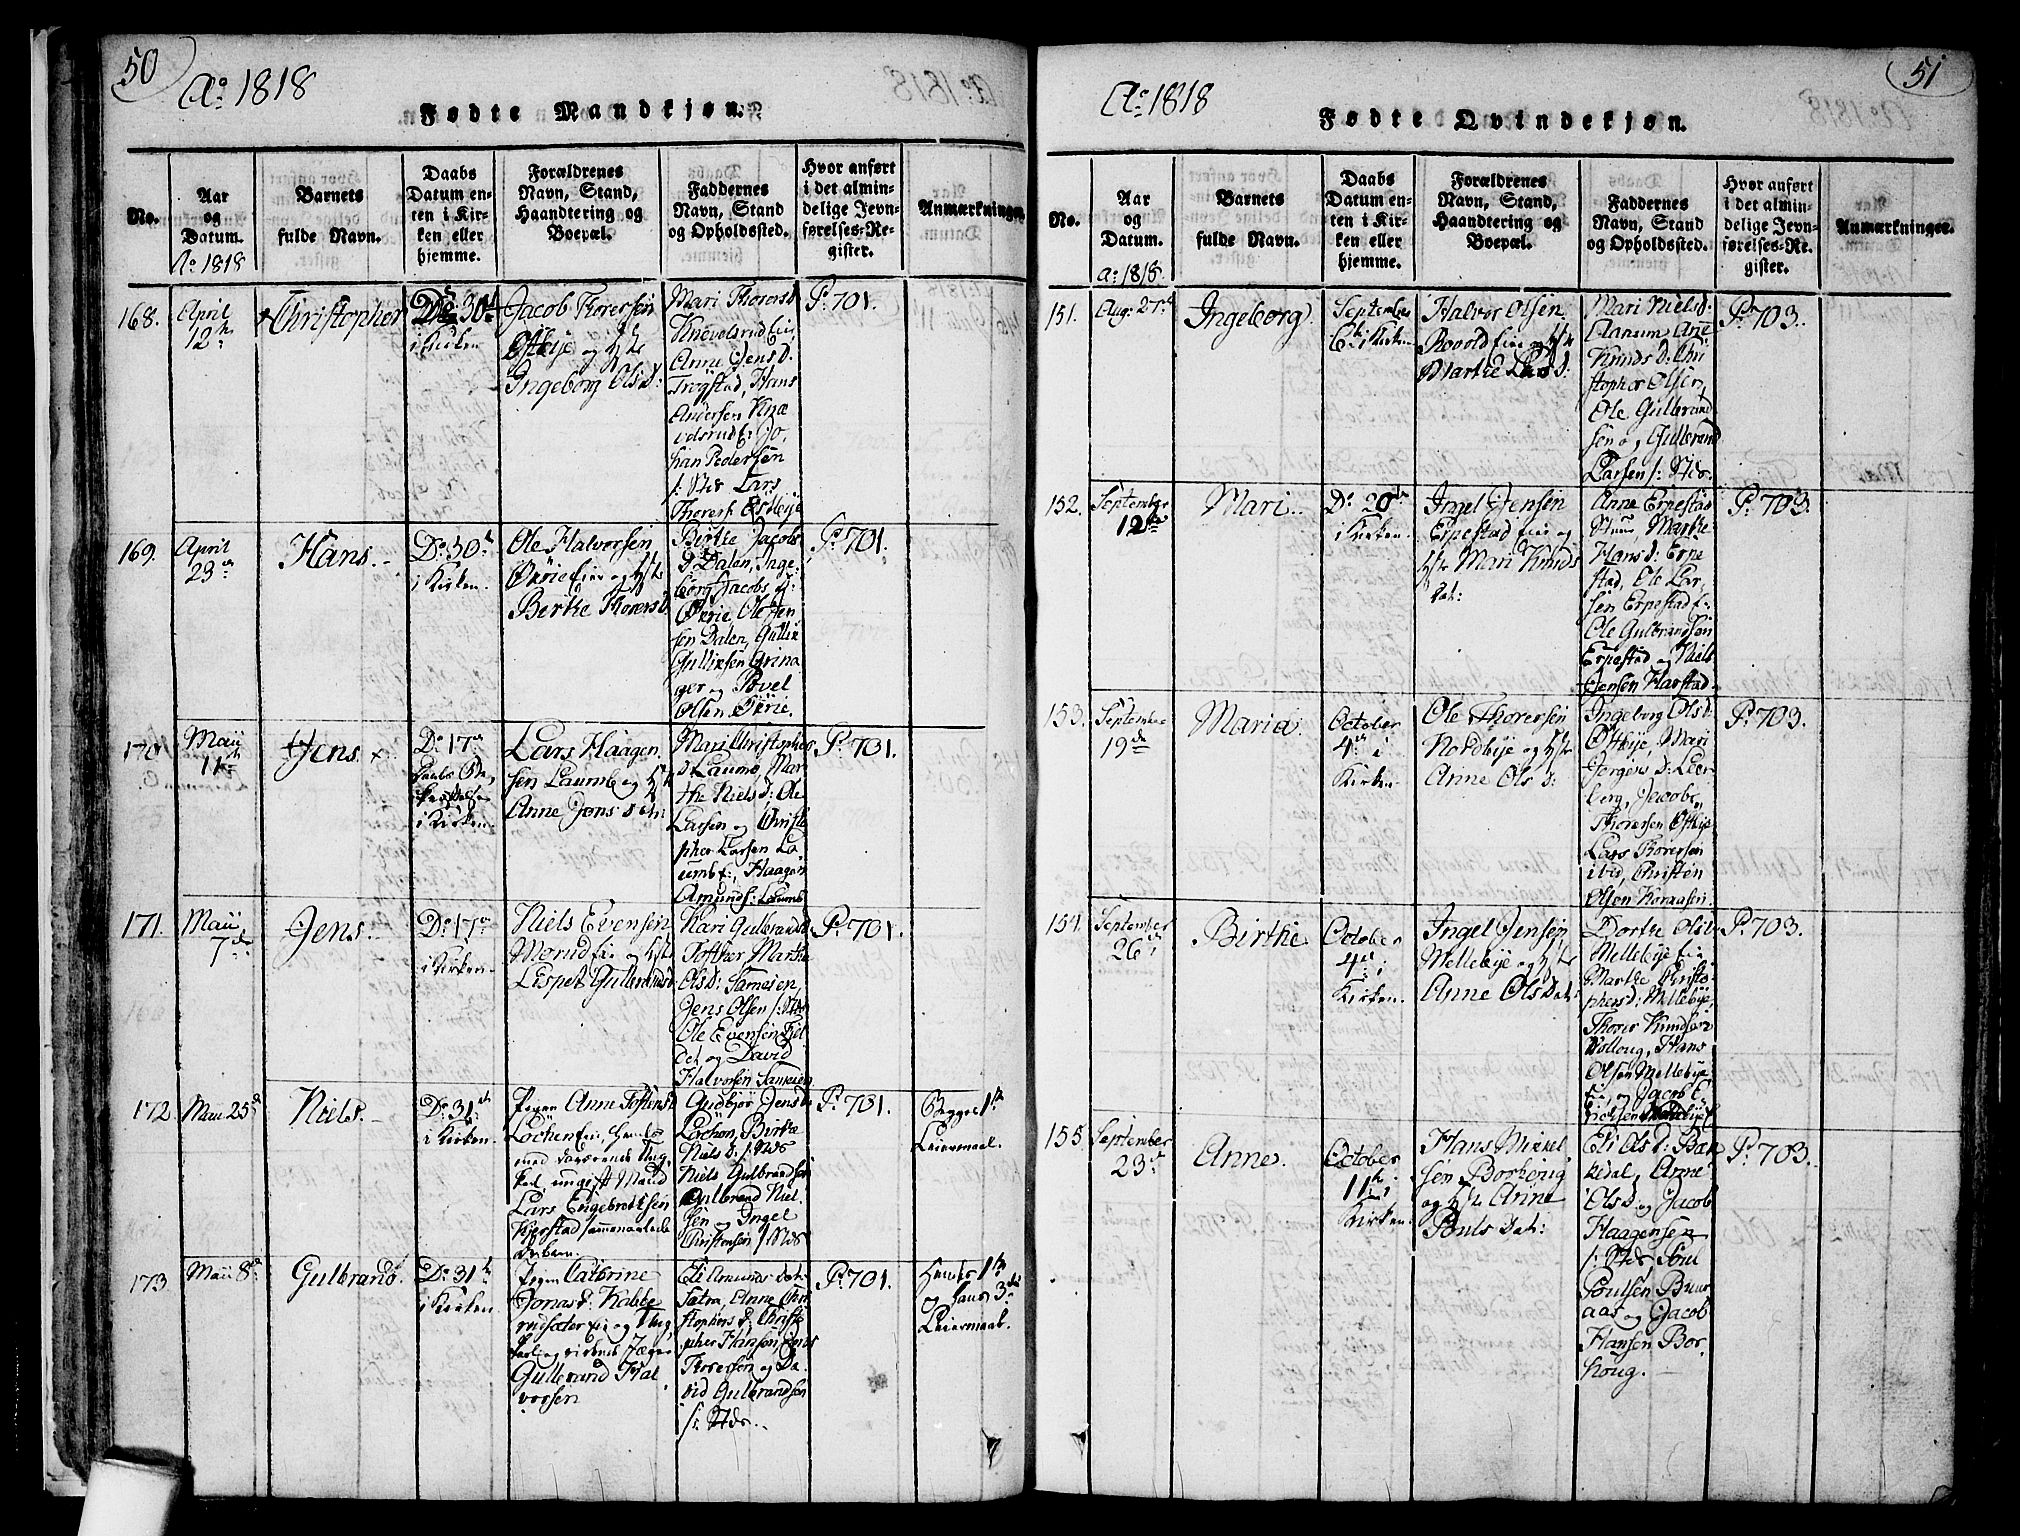 50
Ao 1818
Fødte Mandkjøn.
No.
Aar
og
Datum.
Ao 1818
Barnets
fulde Navn.
Daabs
Datum en-
ten i Kir-
ken eller
hjemme.
Forældrenes
Navn, Stand,
Haandtering og
Boepæl.
Faddernes
Navn, Stand
og Opholdssted.
Hvor anført
i det almin-
delige Jevn-
førelses-Re-
gister.
Anmærkninger.
168.
April
12th
Christopher
Do 30t
i Kirken
Jacob Thorersen
Østbye og Hst
Ingeborg Olsd:
Mari Thorersd
Knevelsrud Eie,
Anne Jensd:
Trøgstad, Hans
Andersen Knæ
velsrud E: Jo,
han Pedersen
/: Stds Lars
Thorers Østbye
P. 701.
169.
April
23de
Hans.
Do 30t
i Kirken.
Ole Halvorsen
Ørie Eie og Hst
Berthe Thorersd
Birthe Jacobs
D Dalen, Inge
borg Jacobs d:
Ørie, Ole
sen Dalen, Gullix
Gullixsen Grina
ger og Povel
Olsen Ørie.
P. 701.
170.
Maij
11te
Jens
Do 17de
i Kirken.
Lars Haagen
sen Laumb og Hst
Anne Jons dat:
Mari Christophe
d Laumb, Mar
the Niels d: Ole
Larsen og Christo
pher Larsen La
umb E:, Haagen
Amunds: Laumb
P. 701.
171.
Maij
7de
Jens.
Do 17de
i Kirken.
Niels Evensen
Morud Eie og Hst
Lispet Gulbrandsd
Kari Gulbrandsd
Tofther Marthe
Olsd: Sameien,
Jens Olsen /: Stds
Ole Evensen
det og David
Halvorsen Sameien
P. 701.
172.
Maii 25de
Niels.
Do 31te
i Kirken.
Pigen Anne Toftensd
Løchen Eie,
med værende Ung
karl, ungift Mand
Lars Engebrethsen
Kjerstad sammenavlede
Drebarn.
Gudbjør Jensd
Lochen, Birthe
Niels d: /: Stds
Niels Gulbrandsen
Gulbrand Niel
sen og Ingel
Christensen /: Stds
P. 701.
Begges 1te
Leiermaal.
173.
Maii 8de
Gulbrand.
Do 31te
i Kirken
Pigen Cathrine
Jonas d: Kabbe
rudsæter Eie og Ung
karl og
Gulbrand Hal
vorsen
Eli Amunds dat:
Sætra, Anne Chri
stophers d, Christo
pher Hansen, Jens
Thorersen og Da
vid Gulbrandsen
/: Stds.
P. 701.
Hendes 1te
og hans 3de
Leiermaal.
51
Ao 1818
Fødte Qvindekjøn.
No.
Aar
og
Datum.
ao 1818.
Barnets
fulde Navn.
Daabs
Datum en-
ten i Kir-
ken eller
hjemme.
Forældrenes
Navn, Stand,
Haandtering og
Boepæl.
Faddernes
Navn, Stand
og Opholdssted.
Hvor anført
i det almin-
delige Jevn-
førelses-Re-
gister.
Anmærkninger.
151.
Aug: 27de
Ingeborg.
September
6te i Kirken
Halvor Olsen
Rovold Eie og Hst
Marthe Lars d:
Mari Niels d:
Aanum, Anne
Knuds d: Chri
stopher Olsen,
Ole Gulbrand
sen og Gulbrand
Larsen /: Stds.
P. 703.
152.
September
12te
Mari
Do 20de
i Kirken.
Ingel Jensen
Erpestad Eie og
Hst Mari Knuds
dat:
Anne Erpestad
Marthe
Hans d: Erpe
stad, Ole Lar
sen Erpestad E:
Ole Gulbrandsen
Erpestad og Niels
Jensen Harstad.
P. 703.
153.
September
19de
Maria.
October
4de i
Kirken.
Ole Thorersen
Nordbye og Hst
Anne Ols d:
Ingeborg Ols d
Østbye, Mari
Jørgens d: Leer
berg, Jacob
Thorersen Østbye
Lars Thorersen
ibid, Christen
Olsen
P. 703.
154.
September
26de
Birthe
October
4de i
Kirken.
Ingel Jensen
Mellebye og Hst
Anne Ols Dat:
Dorthe Olsd
Mellebye Eie
Marthe Christo
phersd: Mellebye,
Thorer Knudsen
Volloug, Hans
Olsen Mellebye
Ei, og Jacob E
richsen
P. 703.
155
September
23de
Anne.
October
11te i
Kirken.
Hans Mikkel
sen Borhoug
og Hst Anne
Pouls Dat:
Eli Ols d: Bak
kedal, Anne
Ols d og Jacob
Haagensen
/: Stds, Sørn
Poulsen Bruur
aas og Jacob
Hansen Bor
houg.
P. 703.